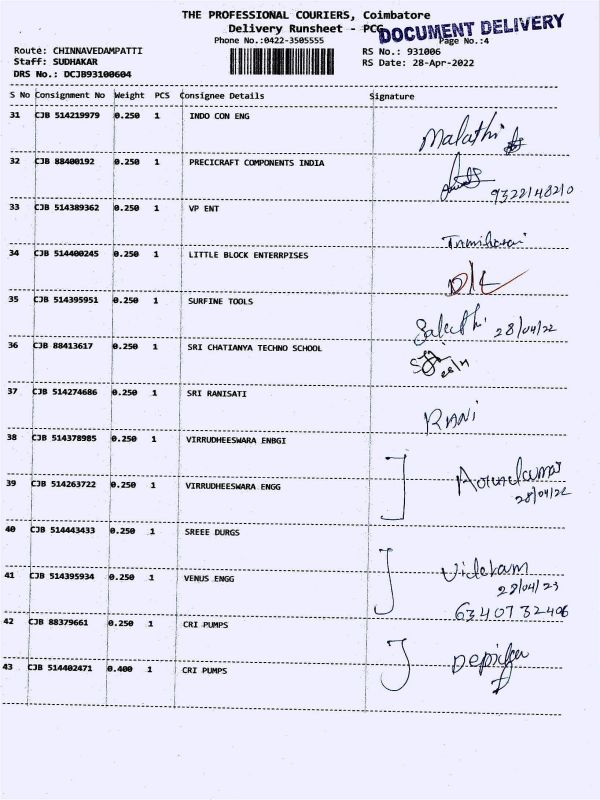 THE PROFESSIONAL COURIERS, Coimbatore
Delivery Runsheet - PCG
DOCUMENT DELIVERY
Phone No.:0422-3505555
Page No.:4
Route: CHINNAVEDAMPATTI
RS No.: 931006
Staff: SUDHAKAR
RS Date: 28-Apr-2022
DRS No.: DCJB93100604
S No Consignment No Weight PCS Consignee Details Signature
31 CJB 514219979 0.250 1 INDO CON ENG Malathi
32 CJB 88400192 0.250 1 PRECICRAFT COMPONENTS INDIA
9322148210
33 CJB 514389362 0.250 1 VP ENT
34 CJB 514400245 0.250 1 LITTLE BLOCK ENTERRPISES
35 CJB 514395951 0.250 1 SURFINE TOOLS
28/04/22
36 CJB 88413617 0.250 1 SRI CHATIANYA TECHNO SCHOOL
37 CJB 514274686 0.250 1 SRI RANISATI
RANI
38 CJB 514378985 0.250 1 VIRRUDHEESWARA ENBGI
39 CJB 514263722 0.250 1 VIRRUDHEESWARA ENGG
28/04/22
40 CJB 514443433 0.250 1 SREEE DURGS
41 CJB 514395934 0.250 1 VENUS ENGG
28/04/23
6340732406
42 CJB 88379661 0.250 1 CRI PUMPS
43 CJB 514402471 0.400 1 CRI PUMPS